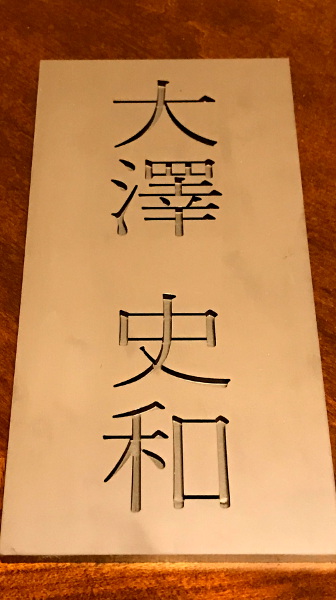 大澤 史和